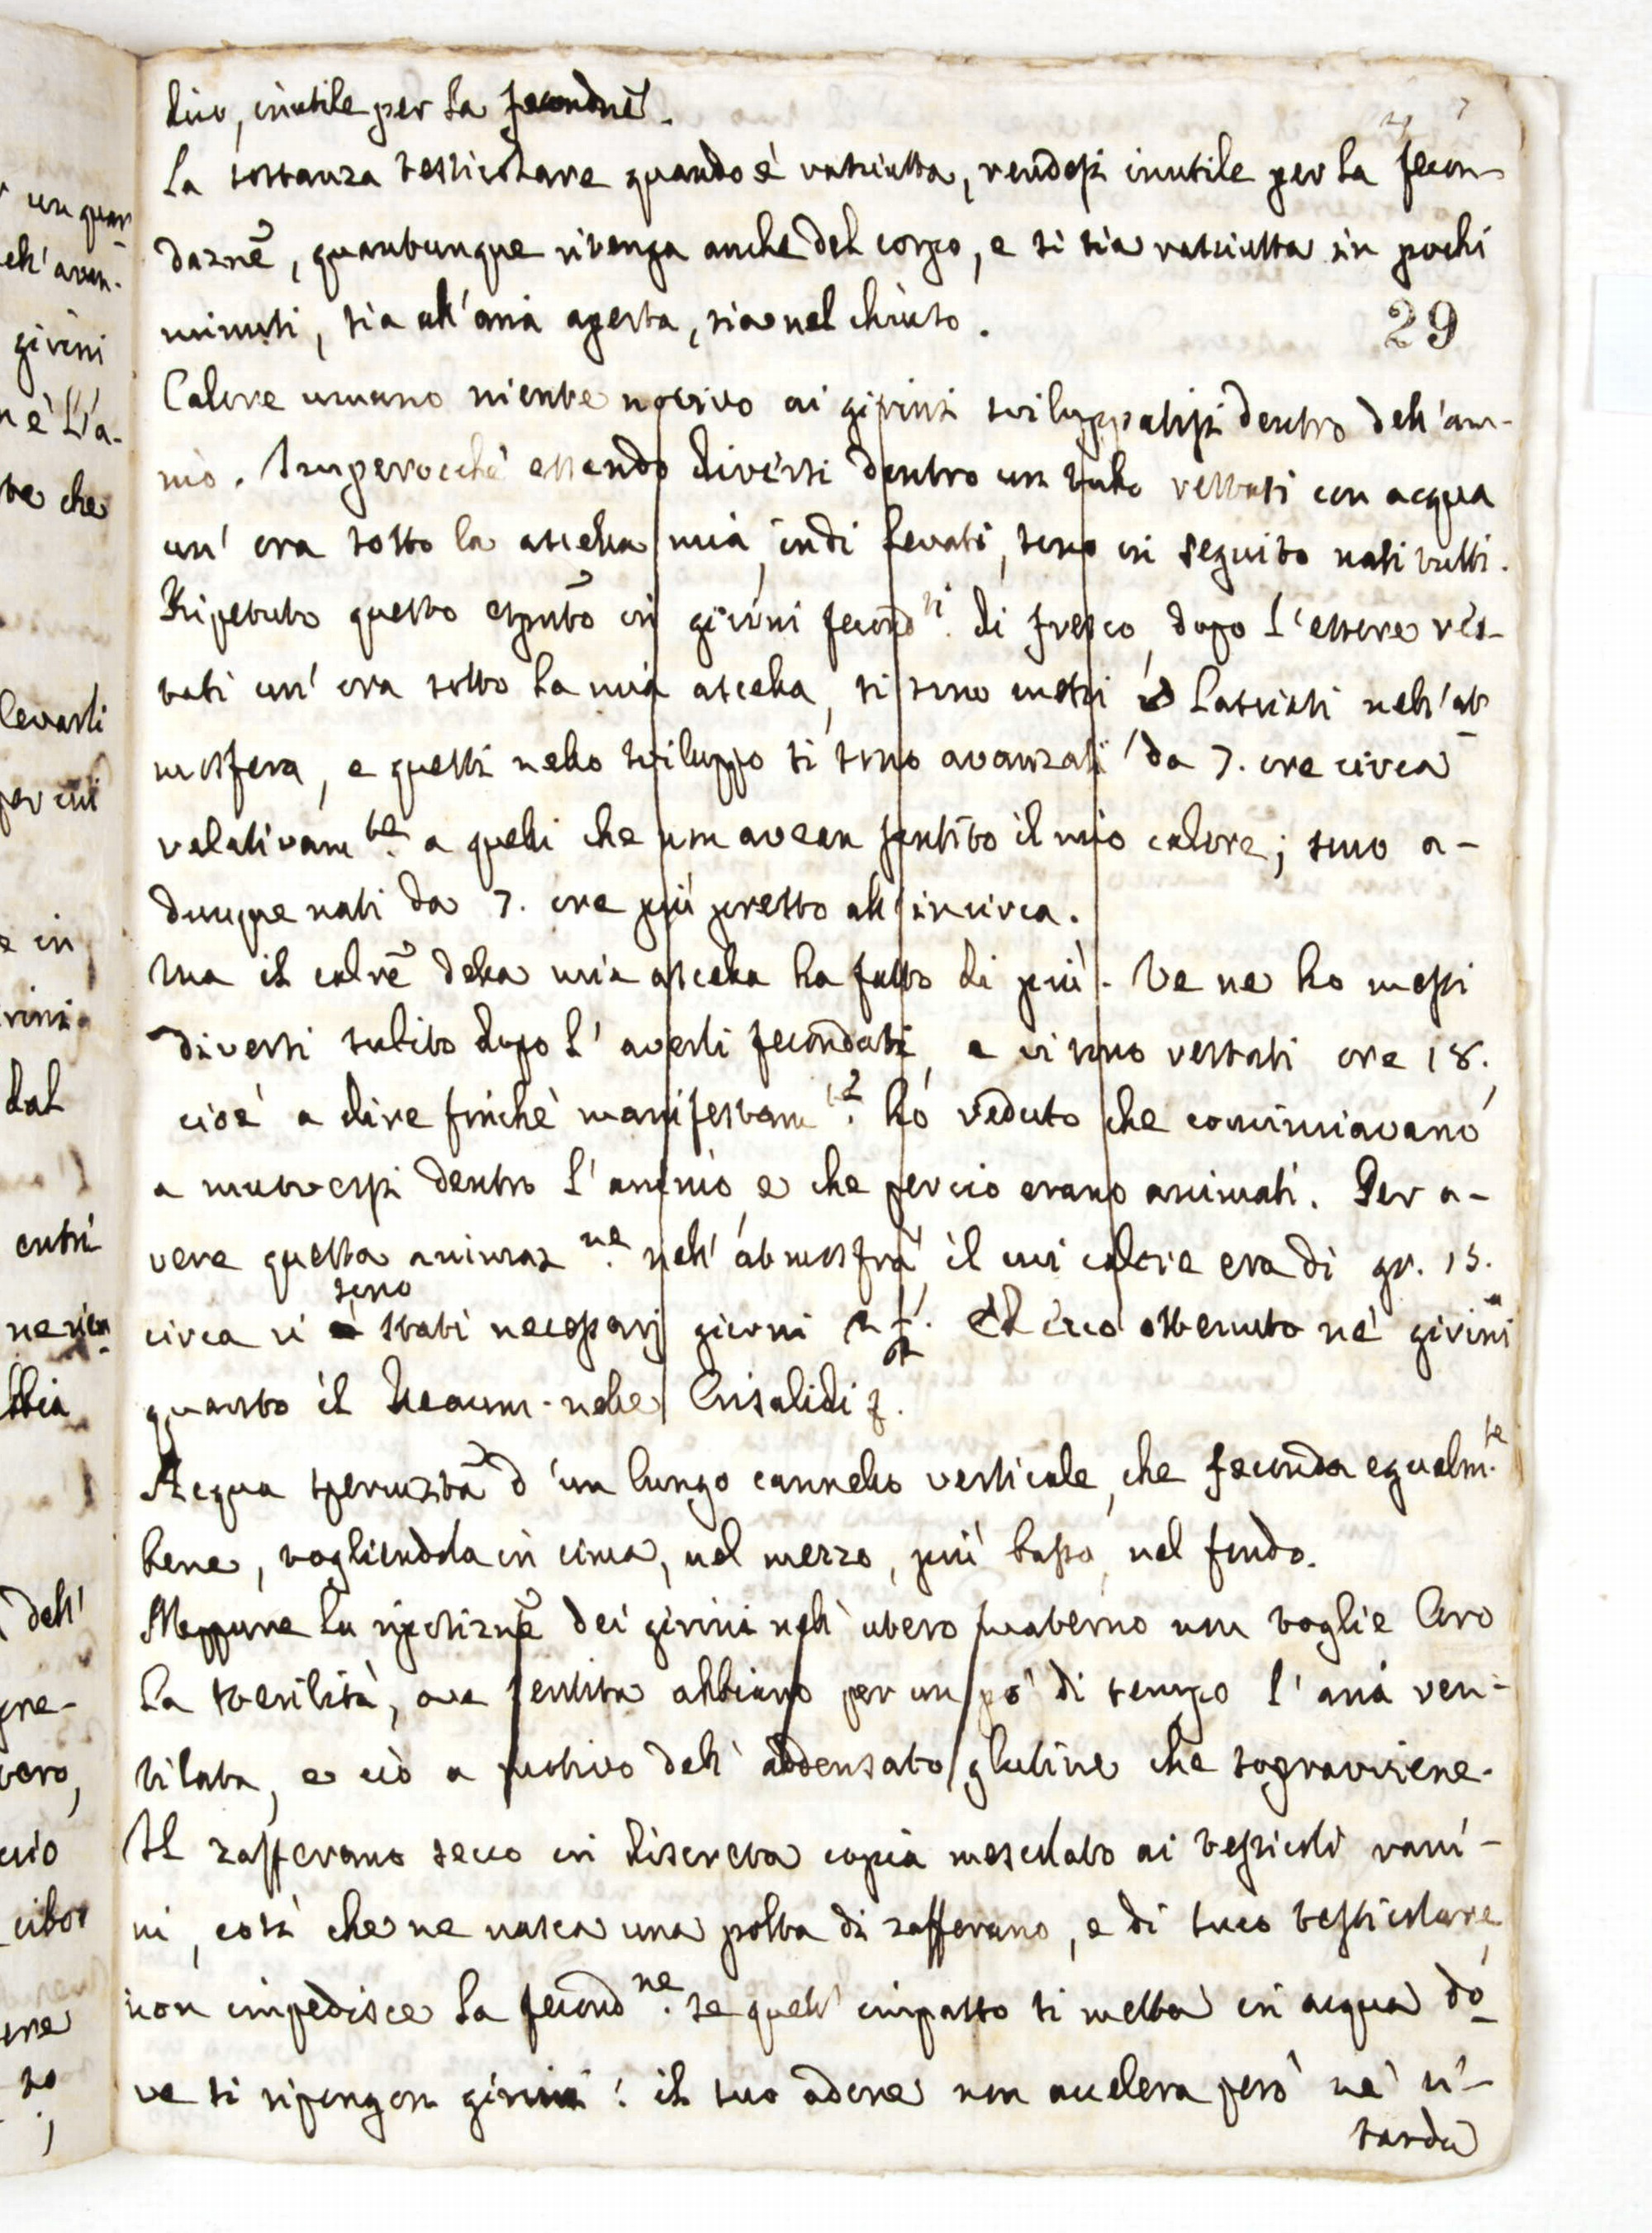 divo, inutile per la fecondne.
La sostanza testicolare quando è rasciutta, rendesi inutile per la fecon-
dazne, quantunque rivenga anche del corpo, e si sia rasciutta in pochi
minuti, sia all'aria aperta, sia nel chiuso.
29
Calore umano niente nocivo ai girini sviluppatisi dentro dell'am-
nio. Imperocchè essendo diversi dentro un tubo restati con acqua
un'ora sotto la ascella mia, indi levati, sono in seguito nati tutti.
Ripetuto questo espmto in girini fecond.ti di fresco, dopo l'essere res-
tati un'ora sotto la mia ascella, si sono messi e lasciati nell'at-
mosfera, e questi nello sviluppo si sono avanzati da 7. ore circa
relativam.te a quelli che non avean sentito il mio calore; sono a-
dunque nati da 7. ore più presto all'incirca.
Ma il calre della mia ascella ha fatto di più. Ve ne ho messi
diversi subito dopo l'averli fecondati, e vi sono restati ore 18.,
cioè a dire finchè manifestam.te ho veduto che cominciavano
a muoversi dentro l'amnio, e che perciò erano animati. Per a-
vere questa animaz.ne nell'atmosfra, il cui calore era di gr. 15.
circa vi sono stati necessarj giorni 2 1/2. Ed ecco ottenuto ne' girini
quanto il Reaum. nelle Crisalidi
Acqua spermzta d'un lungo cannello verticale, che feconda egualm.te
bene, togliendola in cima, nel mezzo, più basso, nel fondo.
Neppure la riposizne dei girini nell'utero materno non toglie loro
la sterilità, ove sentita abbiano per un po' di tempo l'aria ven-
tilata, e ciò a motivo dell'addensato glutine che sopraviene.
Il zafferano secco in discreta copia mescolato ai testicoli rani-
ni, così che ne nasca una polta di zafferano, e di suco testicolare,
non impedisce la fecond.ne se quell'impasto si metta in acqua do-
ve si ripongon girini: il suo odore non accelera però nè ri-
tarda